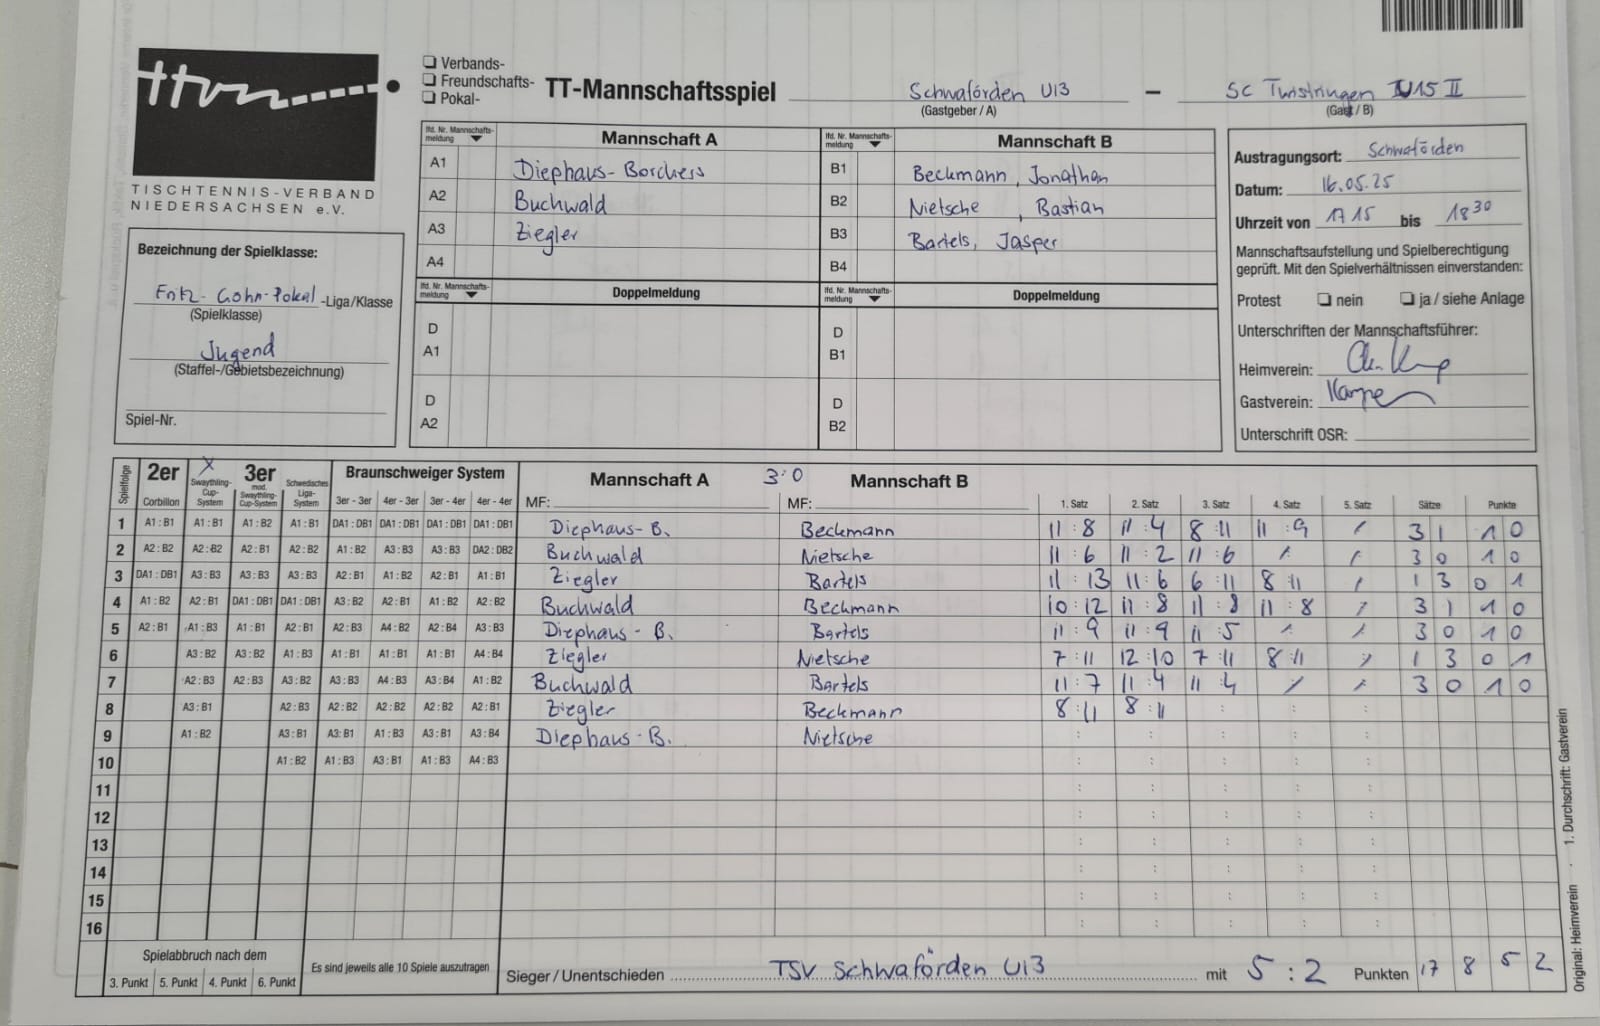 ttvn
TISCHTENNIS-VERBAND
NIEDERSACHSEN e.V.
Verbands-
Freundschafts-
Pokal-
TT-Mannschaftsspiel Schwaförden U13 – SC Twistringen U15 II
(Gastgeber / A) (Gast / B)
lfd. Nr. Mannschafts-meldung Mannschaft A lfd. Nr. Mannschafts-meldung Mannschaft B
A1 Diephaus-Borchers B1 Beckmann, Jonathan
A2 Buchwald B2 Nietsche, Bastian
A3 Ziegler B3 Bartels, Jasper
A4 B4
lfd. Nr. Mannschafts-meldung Doppelmeldung lfd. Nr. Mannschafts-meldung Doppelmeldung
D A1 D B1
D A2 D B2
Austragungsort: Schwaförden
Datum: 16.05.25
Uhrzeit von 17 15 bis 18 30
Mannschaftsaufstellung und Spielberechtigung
geprüft. Mit den Spielverhältnissen einverstanden:
Protest nein ja / siehe Anlage
Unterschriften der Mannschaftsführer:
Heimverein:
Gastverein:
Unterschrift OSR:
Bezeichnung der Spielklasse:
Fritz-Gohn-Pokal -Liga/Klasse
(Spielklasse)
Jugend
(Staffel-/Gebietsbezeichnung)
Spiel-Nr.
Spielfolge 2er X 3er Braunschweiger System Mannschaft A 3:0 Mannschaft B
Corbillon Swaythling-Cup-System mod. Swaythling-Cup-System Schwedisches Liga-System 3er - 3er 4er - 3er 3er - 4er 4er - 4er MF: MF: 1. Satz 2. Satz 3. Satz 4. Satz 5. Satz Sätze Punkte
1 A1 : B1 A1 : B1 A1 : B2 A1 : B1 DA1 : DB1 DA1 : DB1 DA1 : DB1 DA1 : DB1 Diephaus-B. Beckmann 11 : 8 11 : 4 8 : 11 11 : 9 / 3 1 1 0
2 A2 : B2 A2 : B2 A2 : B1 A2 : B2 A1 : B2 A3 : B3 A3 : B3 DA2 : DB2 Buchwald Nietsche 11 : 6 11 : 2 11 : 6 / / 3 0 1 0
3 DA1 : DB1 A3 : B3 A3 : B3 A3 : B3 A2 : B1 A1 : B2 A2 : B1 A1 : B1 Ziegler Bartels 11 : 13 11 : 6 6 : 11 8 : 11 / 1 3 0 1
4 A1 : B2 A2 : B1 DA1 : DB1 DA1 : DB1 A3 : B2 A2 : B1 A1 : B2 A2 : B2 Buchwald Beckmann 10 : 12 11 : 8 11 : 8 11 : 8 / 3 1 1 0
5 A2 : B1 A1 : B3 A1 : B1 A2 : B1 A2 : B3 A4 : B2 A2 : B4 A3 : B3 Diephaus-B. Bartels 11 : 9 11 : 9 11 : 5 / / 3 0 1 0
6 A3 : B2 A3 : B2 A1 : B3 A1 : B1 A1 : B1 A1 : B1 A4 : B4 Ziegler Nietsche 7 : 11 12 : 10 7 : 11 8 : 11 / 1 3 0 1
7 A2 : B3 A2 : B3 A3 : B2 A3 : B3 A4 : B3 A3 : B4 A1 : B2 Buchwald Bartels 11 : 7 11 : 4 11 : 4 / / 3 0 1 0
8 A3 : B1 A2 : B3 A2 : B2 A2 : B2 A2 : B2 A2 : B1 Ziegler Beckmann 8 : 11 8 : 11 : : :
9 A1 : B2 A3 : B1 A3 : B1 A1 : B3 A3 : B1 A3 : B4 Diephaus-B. Nietsche : : : : :
10 A1 : B2 A1 : B3 A3 : B1 A1 : B3 A4 : B3 : : : : :
11 : : : : :
12 : : : : :
13 : : : : :
14 : : : : :
15 : : : : :
16 : : : : :
Spielabbruch nach dem
3. Punkt 5. Punkt 4. Punkt 6. Punkt
Es sind jeweils alle 10 Spiele auszutragen
Sieger / Unentschieden TSV Schwaförden U13 mit 5 : 2 Punkten 17 8 5 2
Original: Heimverein · 1. Durchschrift: Gastverein